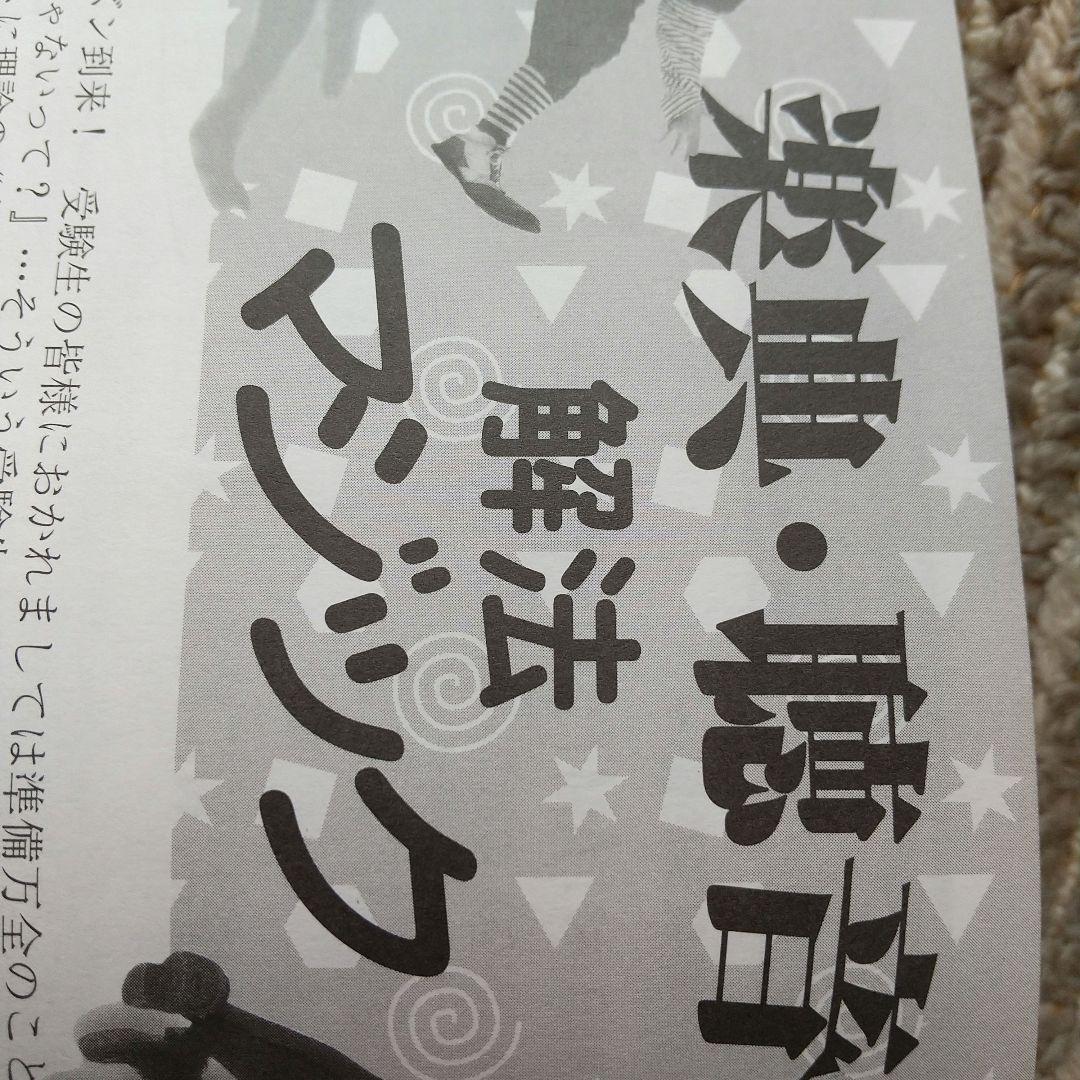 楽典・聴音
解法
マジック
ズン到来！　受験生の皆様におかれましては準備万全のこと
ゃないって？』…そういう受験
に理論の